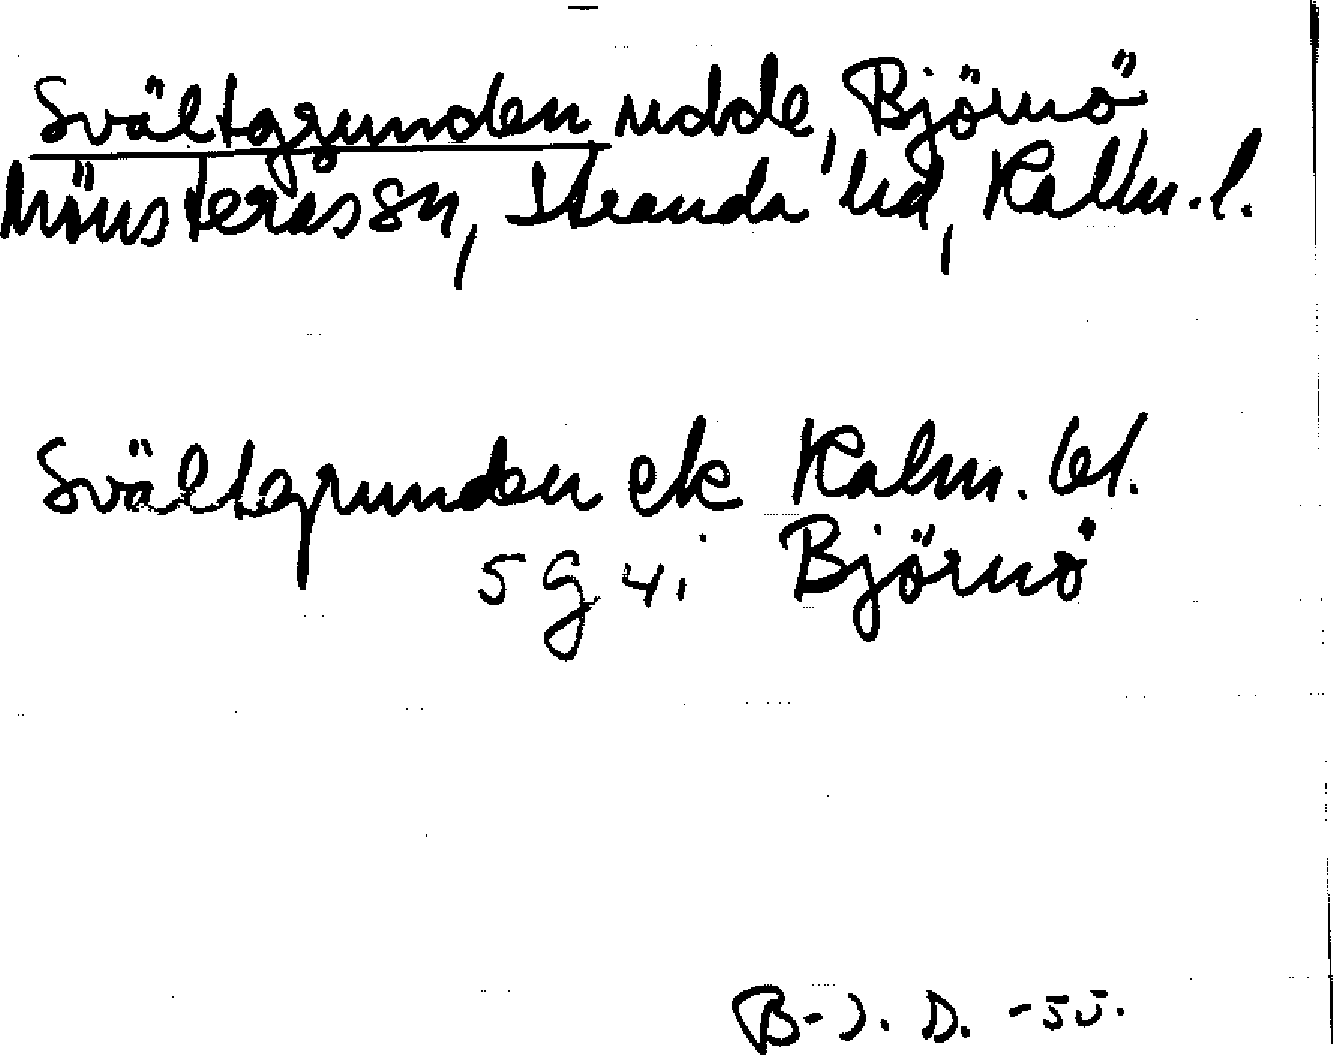 Svältgrunden udde, Björnö
Mönsterås sn, Stranda hd, Kalm. l.
Svältgrunden ek Kalm. bl.
5 G 4 i Björnö
B-J. D. -55.